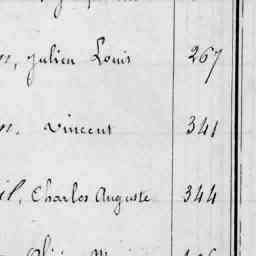 n, Julien Louis 267
n. Vincent 341
il, Charles Auguste 344